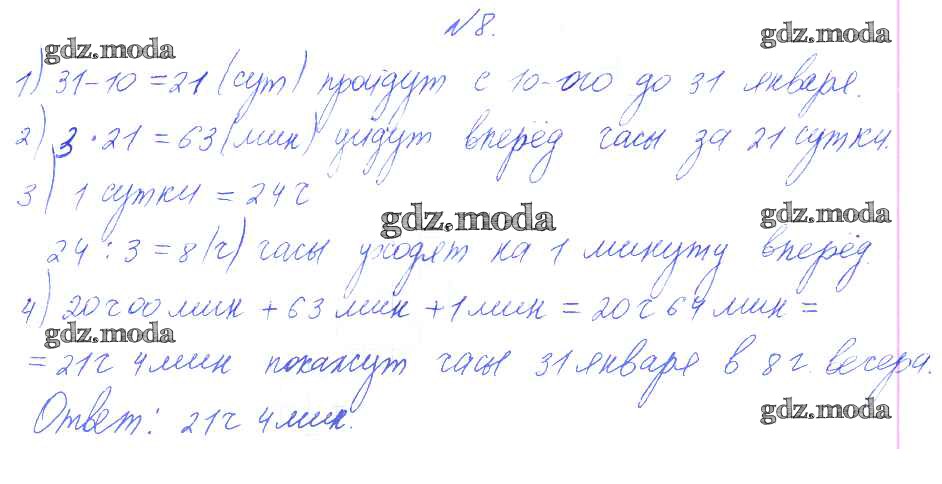 №8.
gdz.moda gdz.moda
1) 31-10=21 (сут) пройдут с 10-ого до 31 января.
2) 3·21=63 (мин) уйдут вперёд часы за 21 сутки.
3) 1 сутки = 24ч
gdz.moda gdz.moda
24:3=8 (ч) часы уходят на 1 минуту вперёд.
4) 20ч 00 мин + 63 мин + 1 мин = 20ч 64 мин =
gdz.moda
= 21ч 4мин покажут часы 31 января в 8 ч. вечера.
gdz.moda
Ответ: 21ч 4мин.